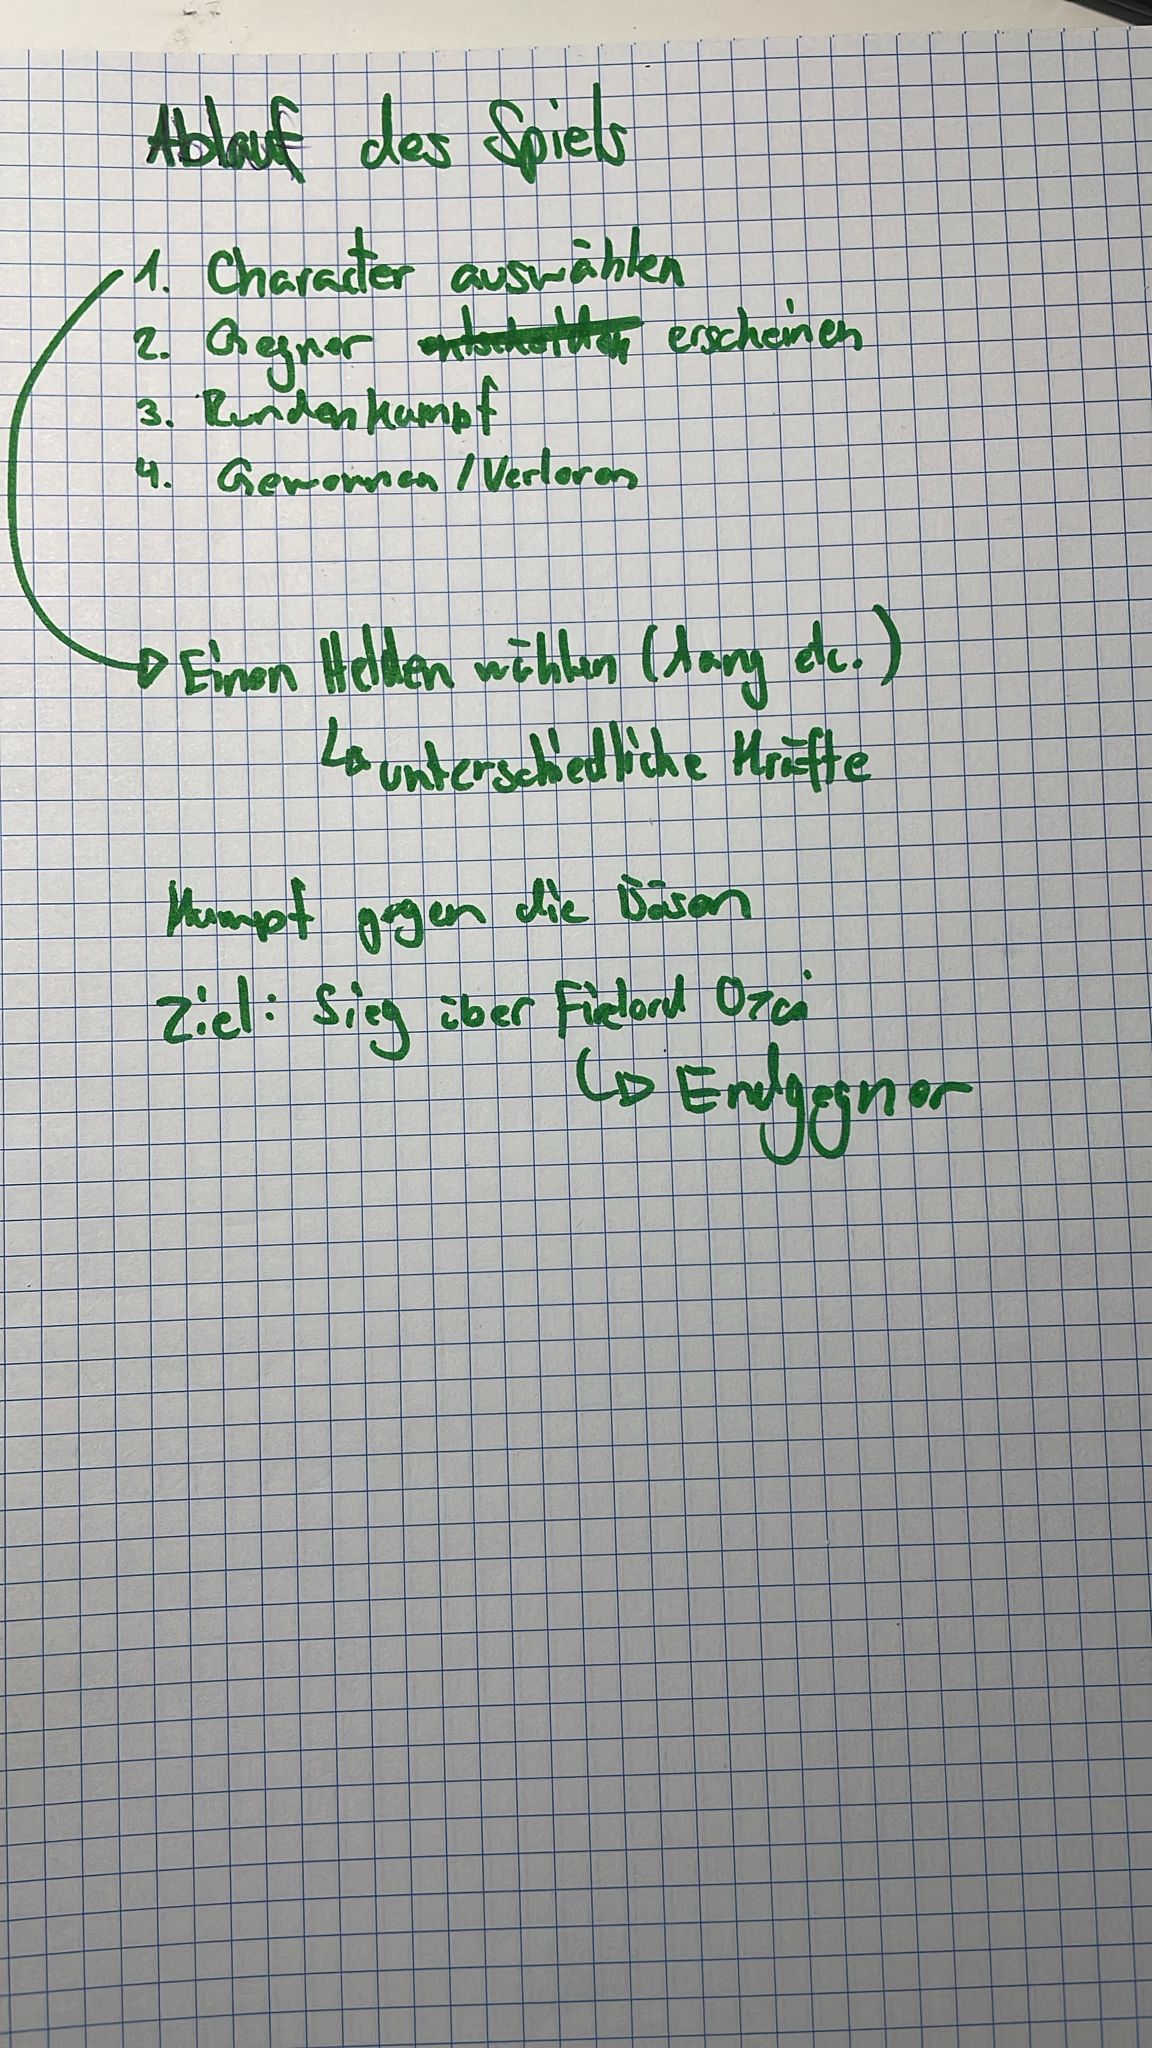 Ablauf des Spiels
1. Character auswählen
2. Gegner erscheinen
3. Rundenkampf
4. Gewonnen / Verloren
Einen Helden wählen (Aang etc.)
unterschiedliche Kräfte
Kampf gegen die Bösen
Ziel: Sieg über Ozai
Endgegner